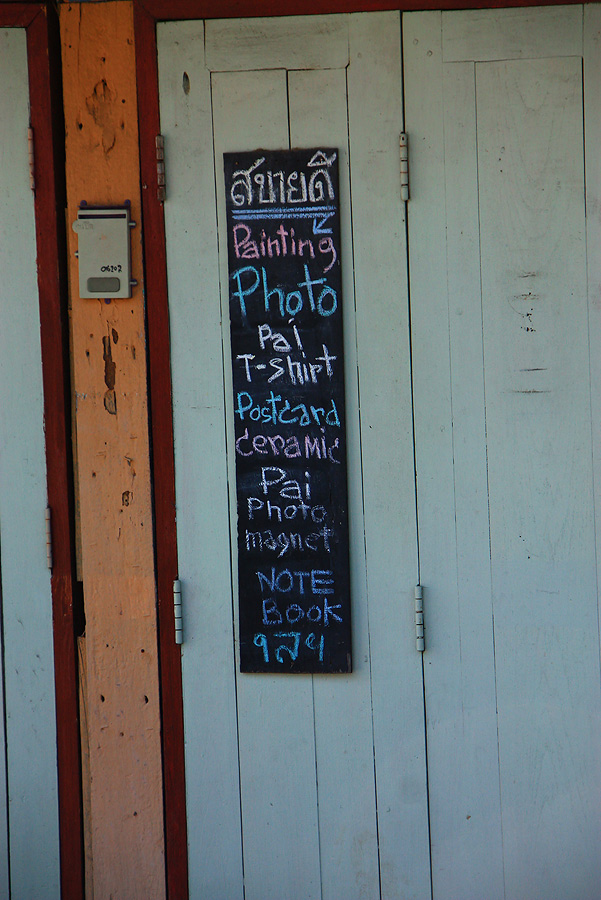 สบายดี
Painting
Photo
Pai
T-shirt
Postcard
ceramic
Pai
Photo
magnet
NOTE
Book
ฯลฯ
06202